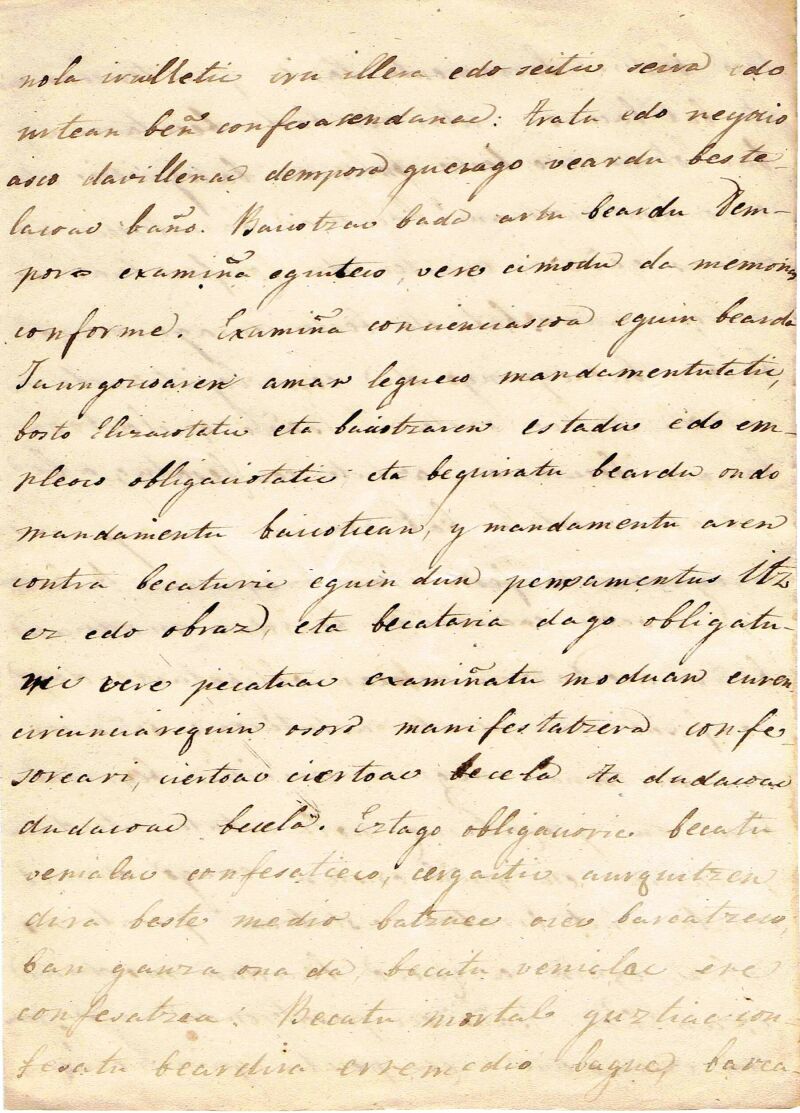 nola iruilletic iru illera edo seitic seira edo
urtean beñ confesacendanac: tratu edo negocio
asco davillenac dempora gueiago veardu beste-
lacoac baño. Bacotzac bada artu beardu Dem-
pora examiña eguiteco, vere cimodu da memoria
conforme. Examiña concienciascoa eguin bearda
Jaungoicoaren amar legueco mandamentutatic,
bosto Elizacotatic eta bacotzaren estadu edo em-
pleoco obligaciotatic eta beguiratu beardu ondo
mandamentu bacoticean, y mandamentu aren
contra becaturic eguin dun pensamentus itz
ez edo obraz, eta becataria dago obligatu-
ric vere pecatuac examiñatu moduan euren
circunciarequin osoro manifestatzera confe-
soreari, ciertoac ciertoac becela ta dudacoac
dudacoac becela. Eztago obligacioric becatu
venialac confesatceco, cergaitic aurquitzen
dira beste medio batzuec oiec barcatzeco,
ban gauza ona da, becatu venialac ere
confesatzea. Becatu mortal guztiac con-
fesatu beardira erremedio bague, barca-